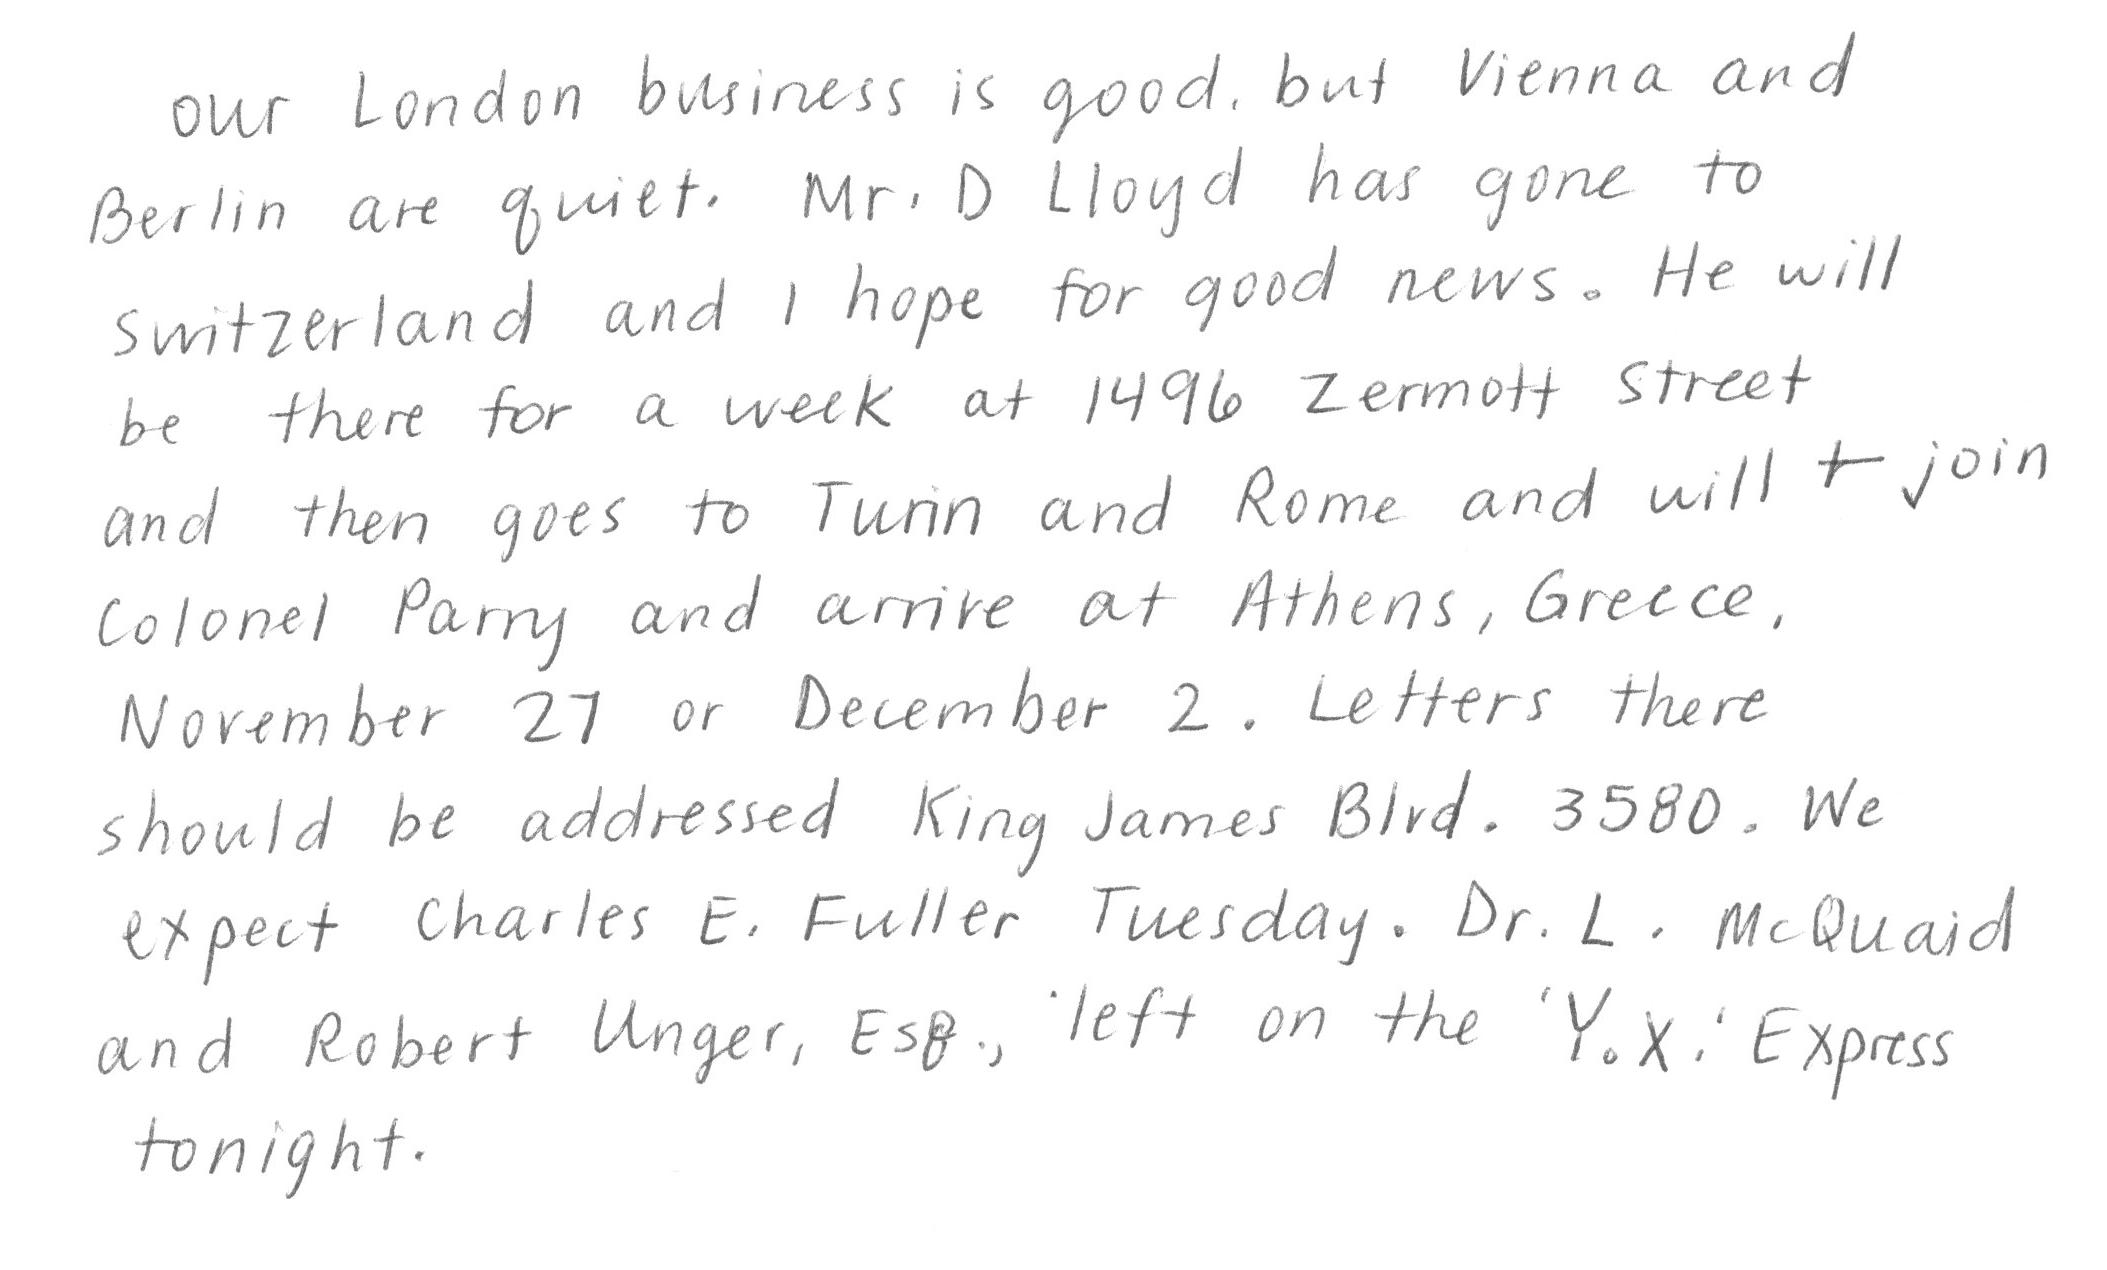 our London business is good. but Vienna and
Berlin are quiet. Mr. D Lloyd has gone to
switzerland and I hope for good news. He will
be there for a week at 1496 Zermott street
and then goes to Turin and Rome and will join
Colonel Parry and arrive at Athens, Greece,
November 27 or December 2. Letters there
should be addressed King James Blvd. 3580. We
expect Charles E. Fuller Tuesday. Dr. L. McQuaid
and Robert Unger, Esq., left on the 'Y.X.' Express
tonight.